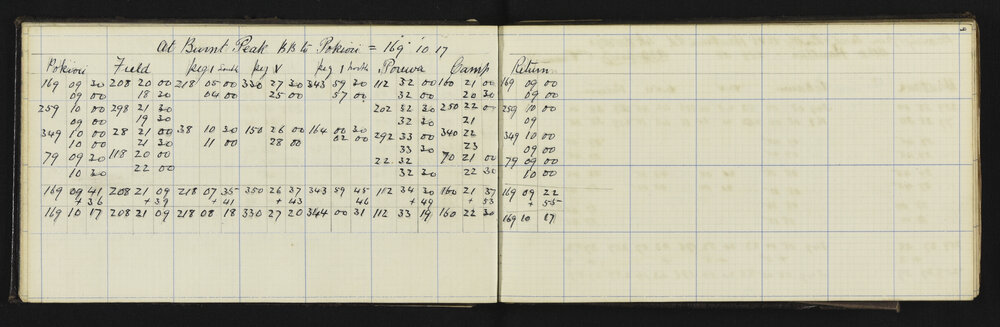 At Burnt Peak BB to Pokiori = 169° 10 17
Pokiori Field peg 1 south peg V peg 1 north Pouwa Camp Return
169 09 30 208 20 00 218 05 00 330 27 30 343 59 30 112 32 00 160 21 00 169 09 00
09 00 18 20 04 00 25 00 57 00 32 00 20 30 09 00
259 10 00 298 21 30 202 32 30 250 22 00 259 10 00
09 00 19 30 32 30 21 09
349 10 00 28 21 00 38 10 30 150 26 00 164 00 30 292 33 00 340 22 349 10 00
10 00 21 30 11 00 28 00 02 00 33 30 23 09 00
79 09 20 118 20 00 22 32 70 21 00 79 09 00
10 30 22 00 32 30 22 30 10 00
169 09 41 208 21 09 218 07 35 330 26 37 343 59 45 112 34 30 160 21 37 169 09 22
+ 36 + 39 + 41 + 43 46 + 49 + 53 + 55
169 10 17 208 21 09 218 08 18 330 27 20 344 00 31 112 33 19 160 22 30 169 10 17